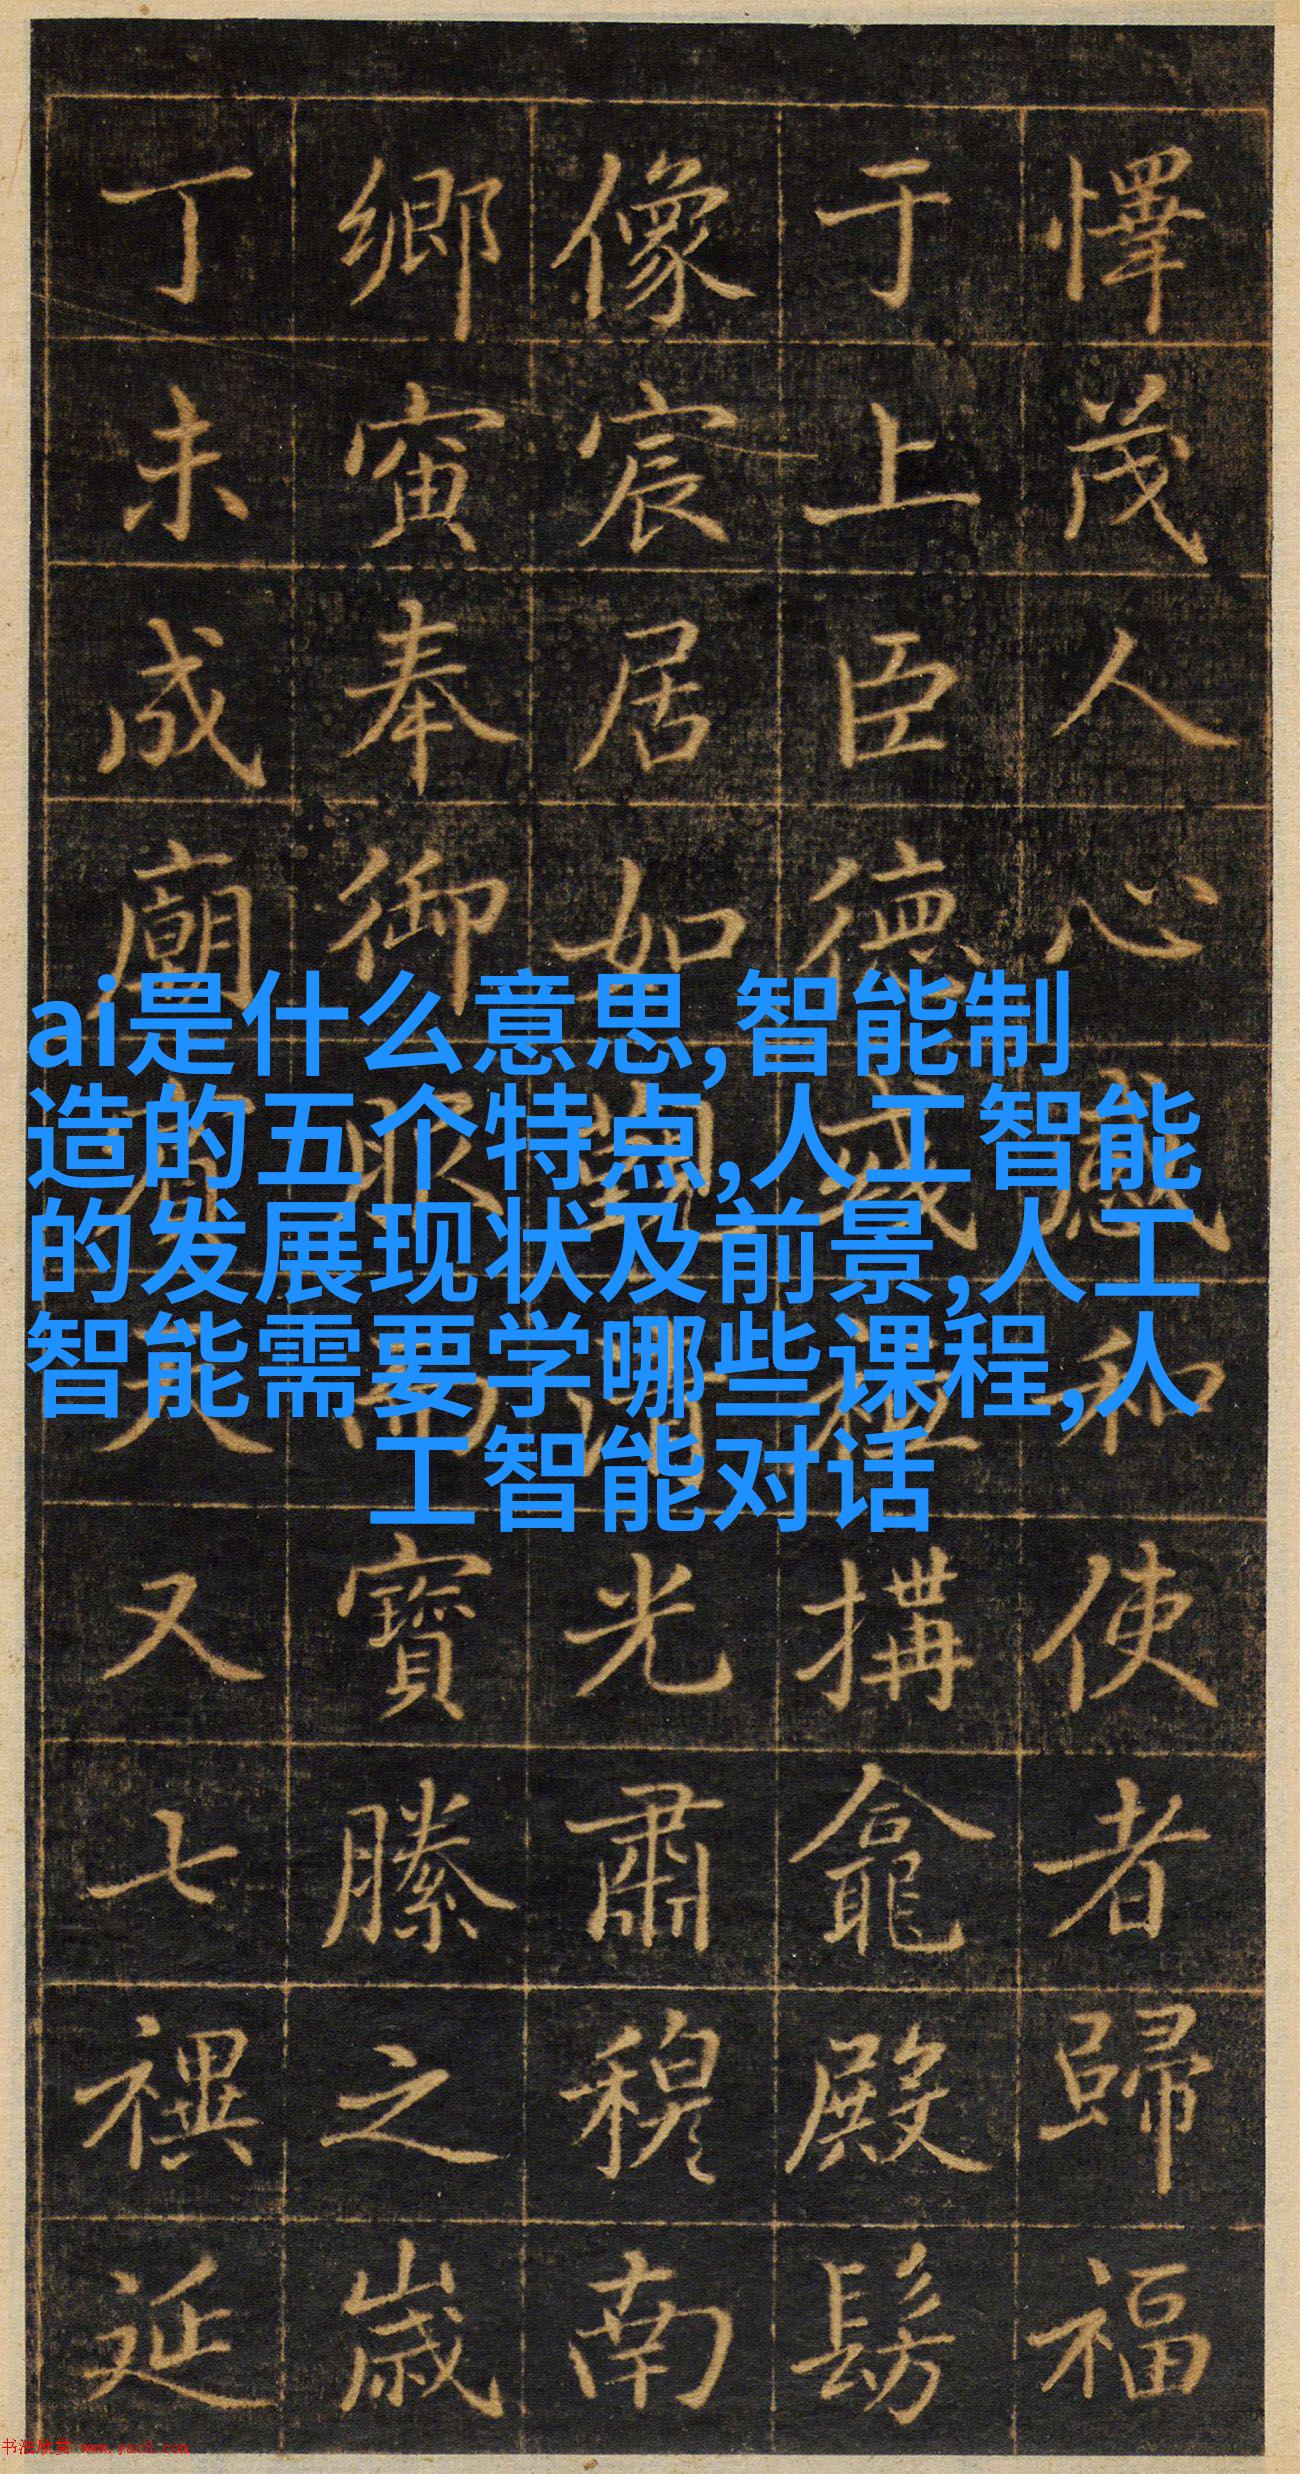 懌茂人心感和使者歸福
于上臣德構龕殿髣
像宸居如光肅穆南
鄉寅奉御服寶縢之歲
丁未成廟又七禩延
ai是什么意思,智能制
造的五个特点,人工智能
的发展现状及前景,人工
智能需要学哪些课程,人
工智能对话
书法欣赏 www.yac8.com